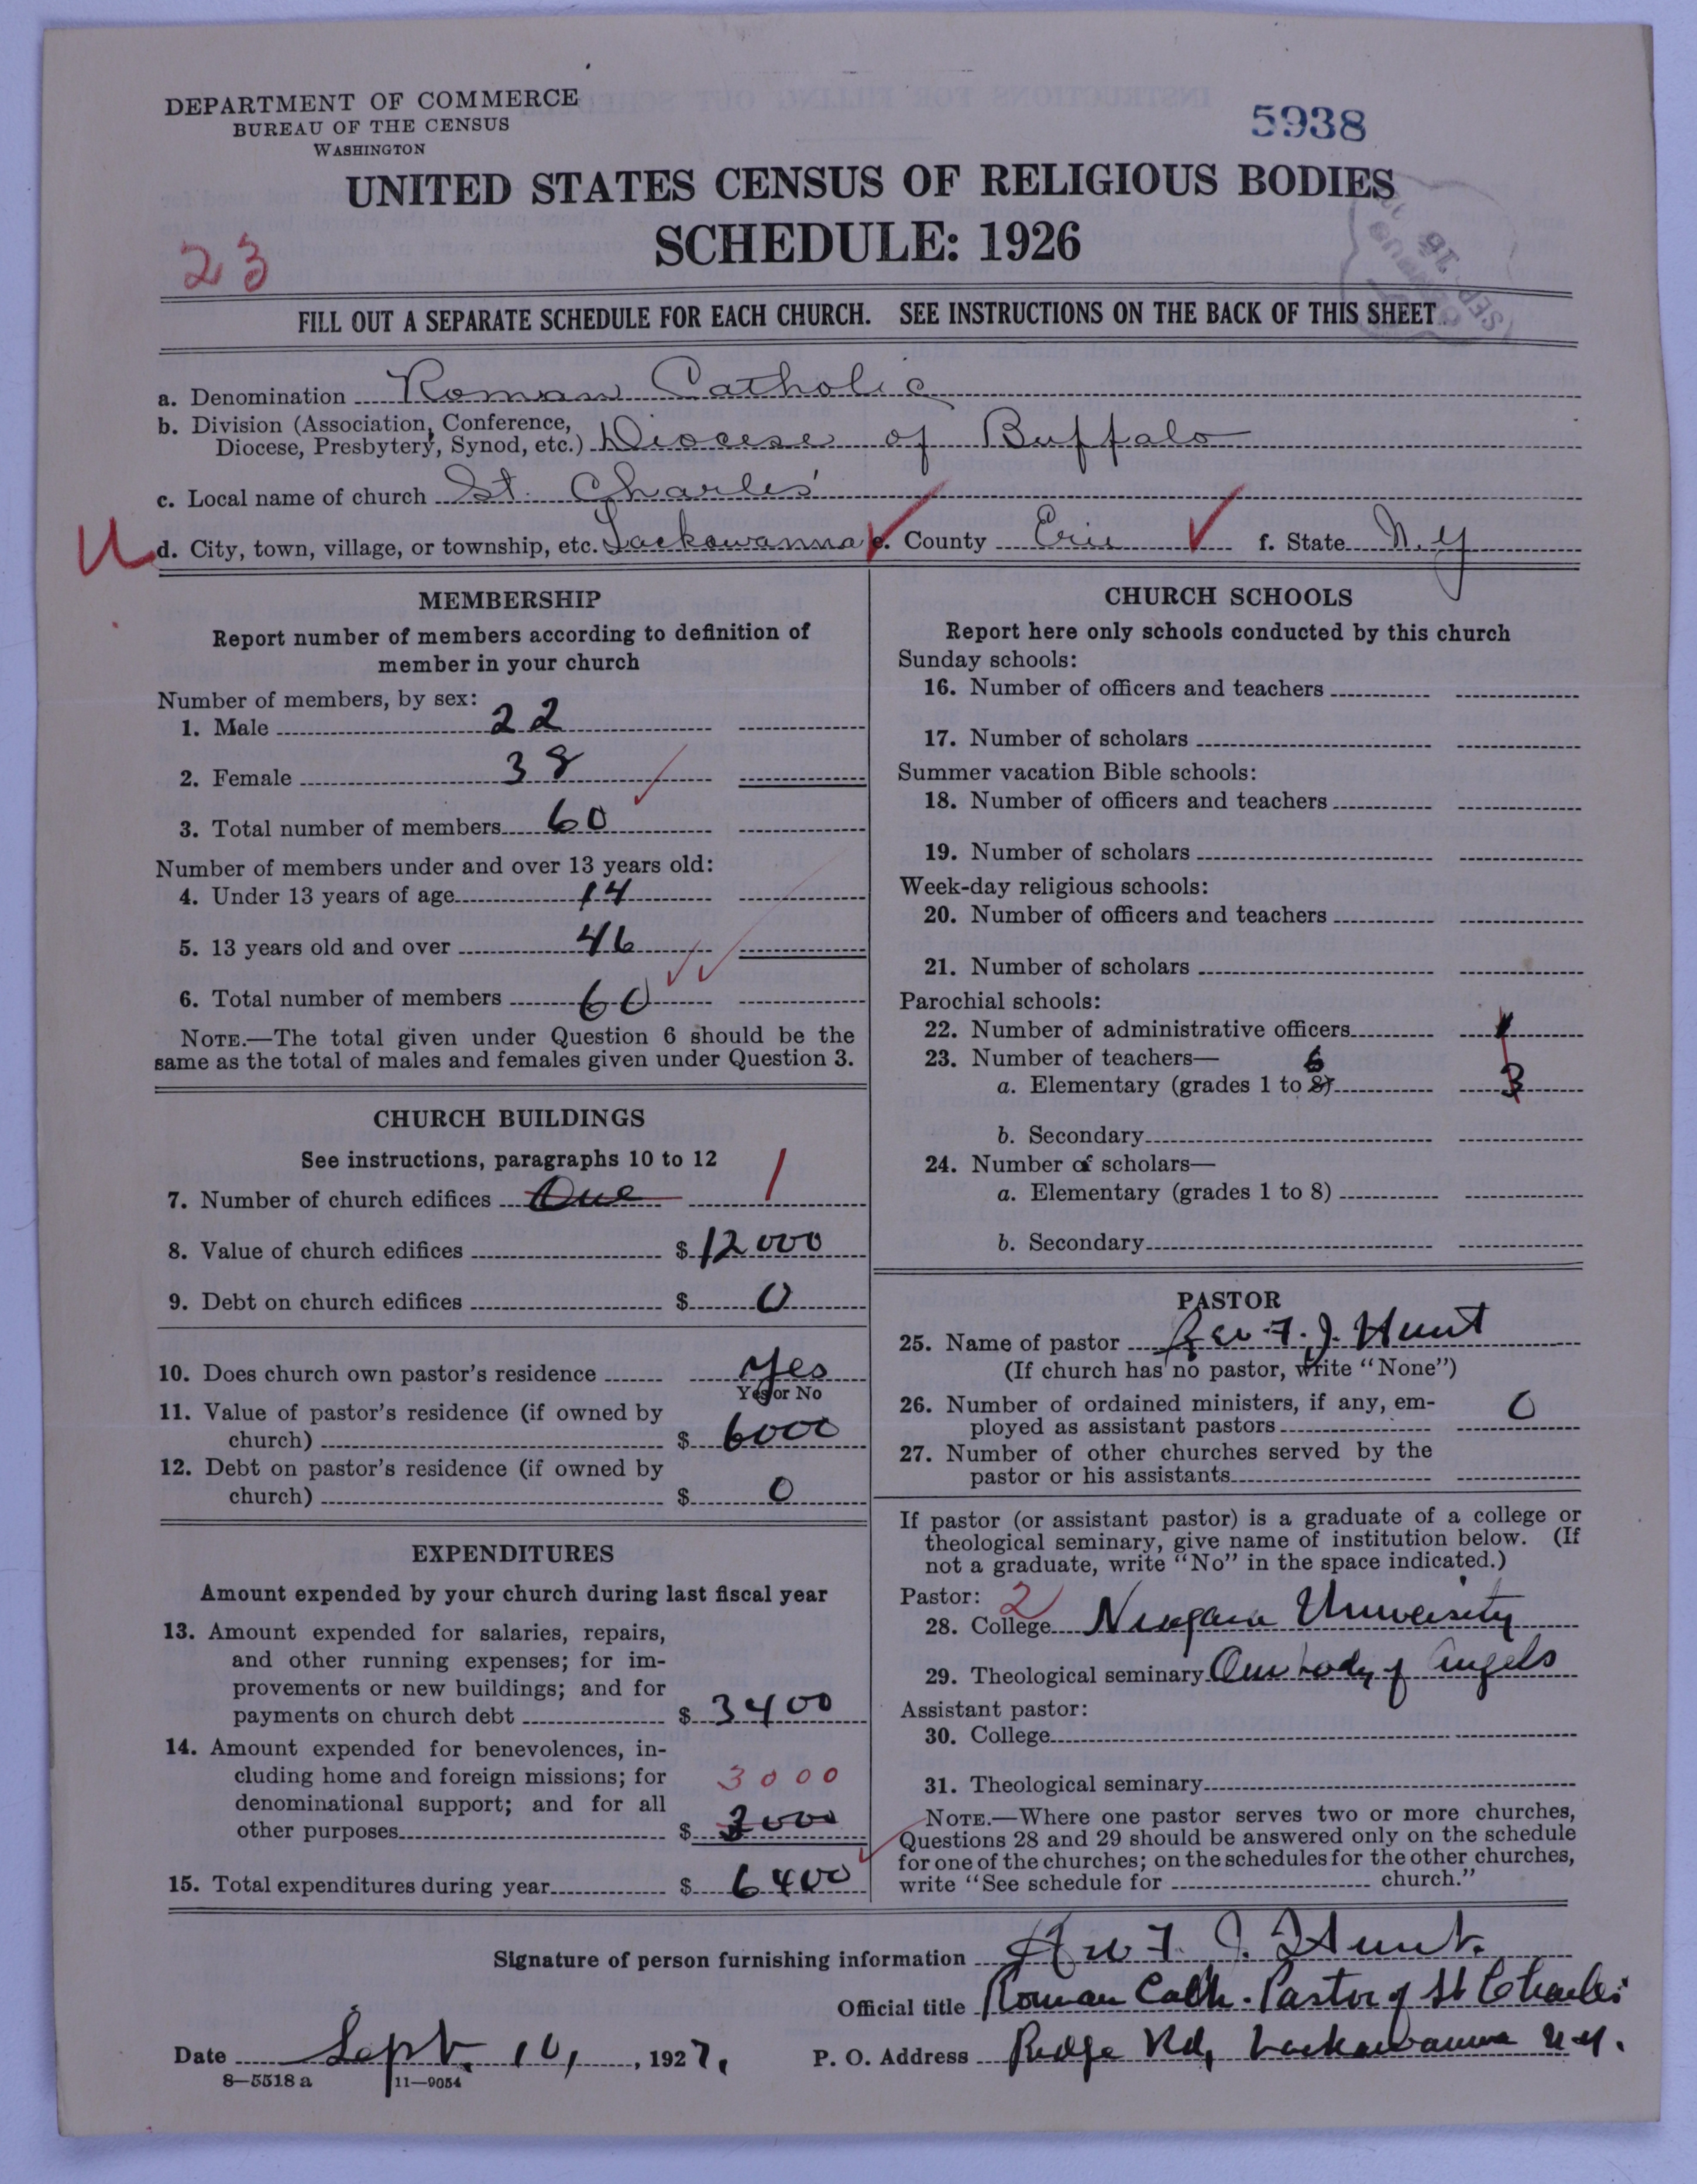 DEPARTMENT OF COMMERCE
BUREAU OF THE CENSUS
WASHINGTON
5938
UNITED STATES CENSUS OF RELIGIOUS BODIES
SCHEDULE: 1926
23
FILL OUT A SEPARATE SCHEDULE FOR EACH CHURCH. SEE INSTRUCTIONS ON THE BACK OF THIS SHEET
a. Denomination Roman Catholic
b. Division (Association, Conference,
Diocese, Presbytery, Synod, etc.) Diocese of Buffalo
c. Local name of church St. Charles'
U d. City, town, village, or township, etc. Lackawanna e. County Erie f. State N.Y
MEMBERSHIP
Report number of members according to definition of
member in your church
Number of members, by sex:
1. Male 22
2. Female 38
3. Total number of members 60
Number of members under and over 13 years old:
4. Under 13 years of age 14
5. 13 years old and over 46
6. Total number of members 60
NOTE.—The total given under Question 6 should be the
same as the total of males and females given under Question 3.
CHURCH BUILDINGS
See instructions, paragraphs 10 to 12
7. Number of church edifices One 1
8. Value of church edifices $ 12000
9. Debt on church edifices $ 0
10. Does church own pastor's residence Yes
Yes or No
11. Value of pastor's residence (if owned by
church) $ 6000
12. Debt on pastor's residence (if owned by
church) $ 0
EXPENDITURES
Amount expended by your church during last fiscal year
13. Amount expended for salaries, repairs,
and other running expenses; for im-
provements or new buildings; and for
payments on church debt $ 3400
14. Amount expended for benevolences, in-
cluding home and foreign missions; for 3000
denominational support; and for all
other purposes $ 3000
15. Total expenditures during year $ 6400
CHURCH SCHOOLS
Report here only schools conducted by this church
Sunday schools:
16. Number of officers and teachers
17. Number of scholars
Summer vacation Bible schools:
18. Number of officers and teachers
19. Number of scholars
Week-day religious schools:
20. Number of officers and teachers
21. Number of scholars
Parochial schools:
22. Number of administrative officers 1
23. Number of teachers— 6
a. Elementary (grades 1 to 8) 3
b. Secondary
24. Number of scholars—
a. Elementary (grades 1 to 8)
b. Secondary
PASTOR
25. Name of pastor Rev. F. J. Hunt
(If church has no pastor, write "None")
26. Number of ordained ministers, if any, em-
ployed as assistant pastors 0
27. Number of other churches served by the
pastor or his assistants
If pastor (or assistant pastor) is a graduate of a college or
theological seminary, give name of institution below. (If
not a graduate, write "No" in the space indicated.)
Pastor: 2
28. College Niagara University
29. Theological seminary Our Lady of Angels
Assistant pastor:
30. College
31. Theological seminary
NOTE.—Where one pastor serves two or more churches,
Questions 28 and 29 should be answered only on the schedule
for one of the churches; on the schedules for the other churches,
write "See schedule for church."
Signature of person furnishing information Rev F. J. Hunt.
Official title Roman Cath. Pastor of St Charles
Date Sept. 10, , 1927, P. O. Address Ridge Rd, Lackawanna N.Y.
8—5518 a 11—9054